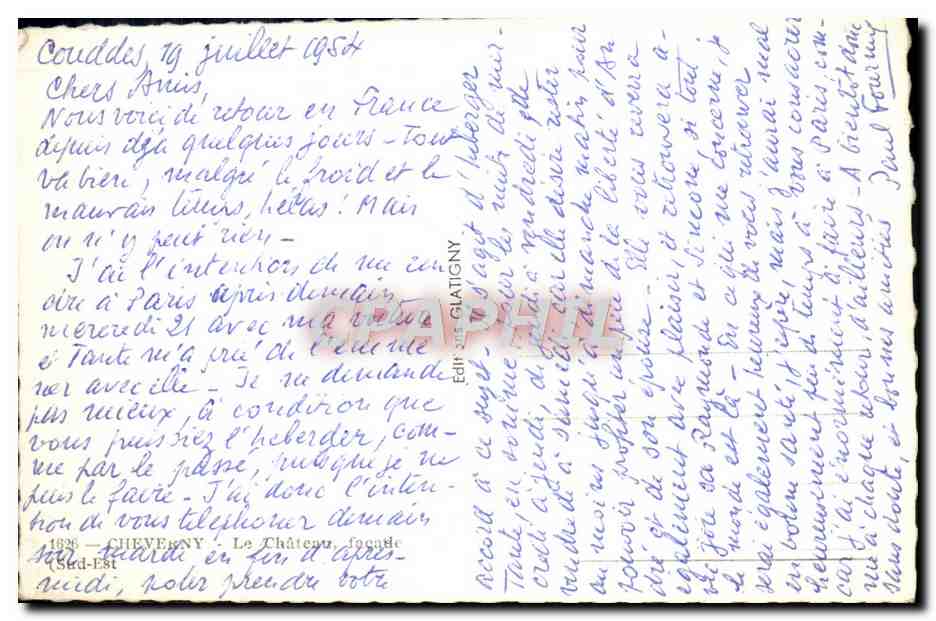 Couddes, 19 juillet 1954
Chers Amis,
Nous voici de retour en France
depuis déjà quelques jours - Tout
va bien, malgré le froid et le
mauvais temps, hélas! Mais
on n'y peut rien -
J'ai l'intention de me ren
dre à Paris après demain
mercredi 21 avec ma voiture
et Tante m'a prié de l'emme
ner avec elle - Je ne demande
pas mieux, à condition que
vous puissiez l'heberder, com-
me par le passé, puisque je ne
puis le faire - J'ai donc l'inten-
tion de vous telephoner demain
soir mardi en fin d'après-
midi, pour prendre votre
1626 - CHEVERNY - Le Château, façade
Sud-Est
Editions GLATIGNY
CPAPHIL
accord à ce sujet - Il s'agit d'héberger
Tante en somme pour les nuits de mer-
credi à jeudi, de jeudi à vendredi et de
vendredi à samedi, car elle désire rester
au moins jusqu'à dimanche matin pour
pouvoir profiter un peu de la liberté d'An
dré et de son épouse - Elle vous reverra
également avec plaisir, et retrouvera a-
vec joie sa Raymonde et Simone si tout
le monde est là - En ce qui me concerne, je
serai également heureux de vous retrouver
en bonne santé, j'espère, mais j'aurai mal
heureusement peu de temps à vous consacrer
car j'ai énormément à faire à Paris com-
me à chaque retour d'ailleurs - A bientôt donc
sans doute, et bonnes amitiés Paul Fournis